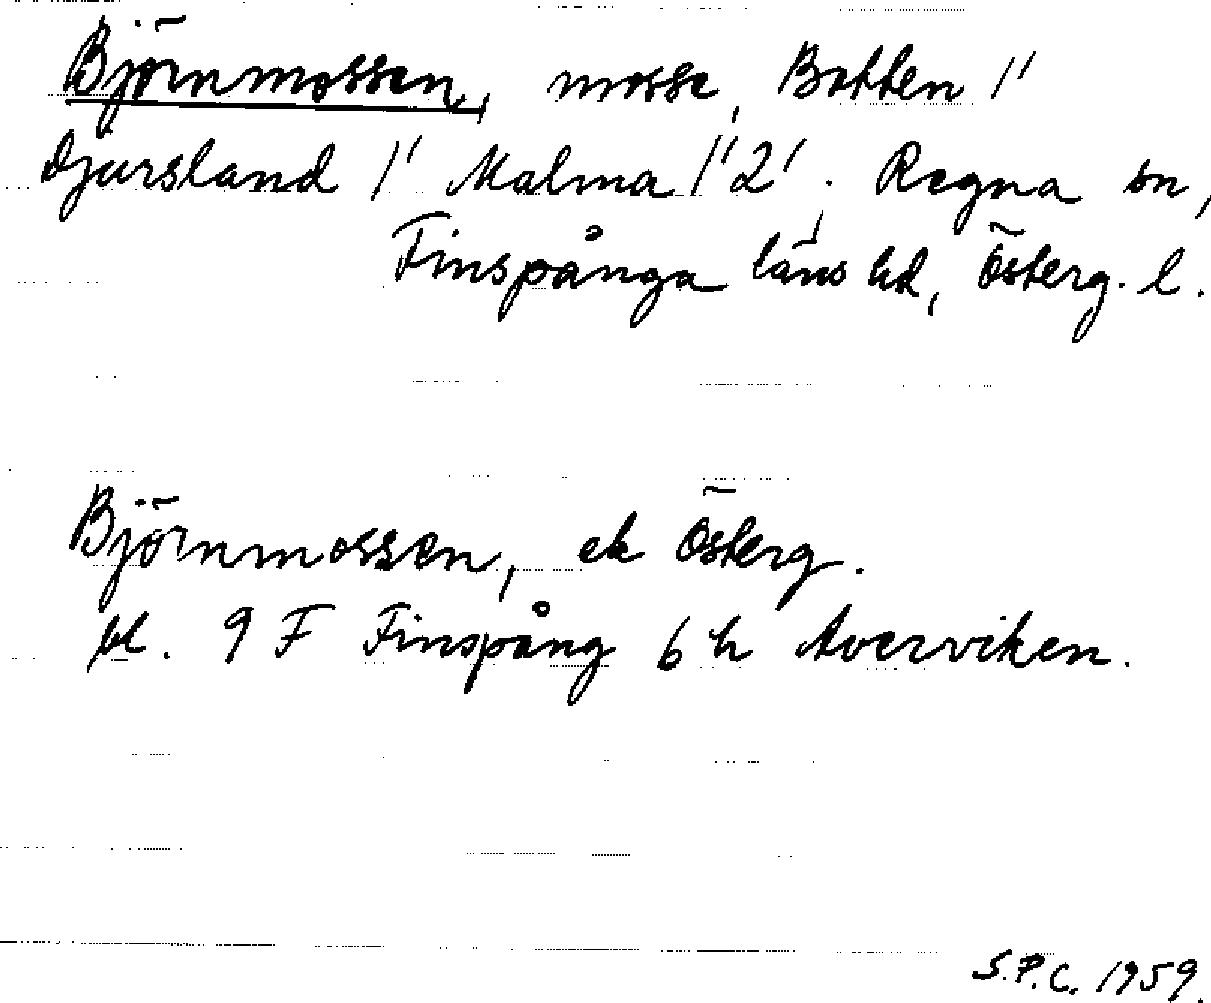 Björnmossen, mosse, Botten 1'
Djursland 1' Malma 1'2'. Regna sn,
Finspånga läns hd, Österg. l.
Björnmossen, ek Österg.
bl. 9 F Finspång 6 h Averviken.
S.P.C. 1959.